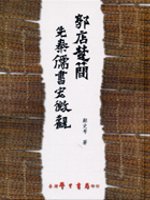 郭店楚簡
先秦儒書宏微觀
著
臺灣學生書局印行